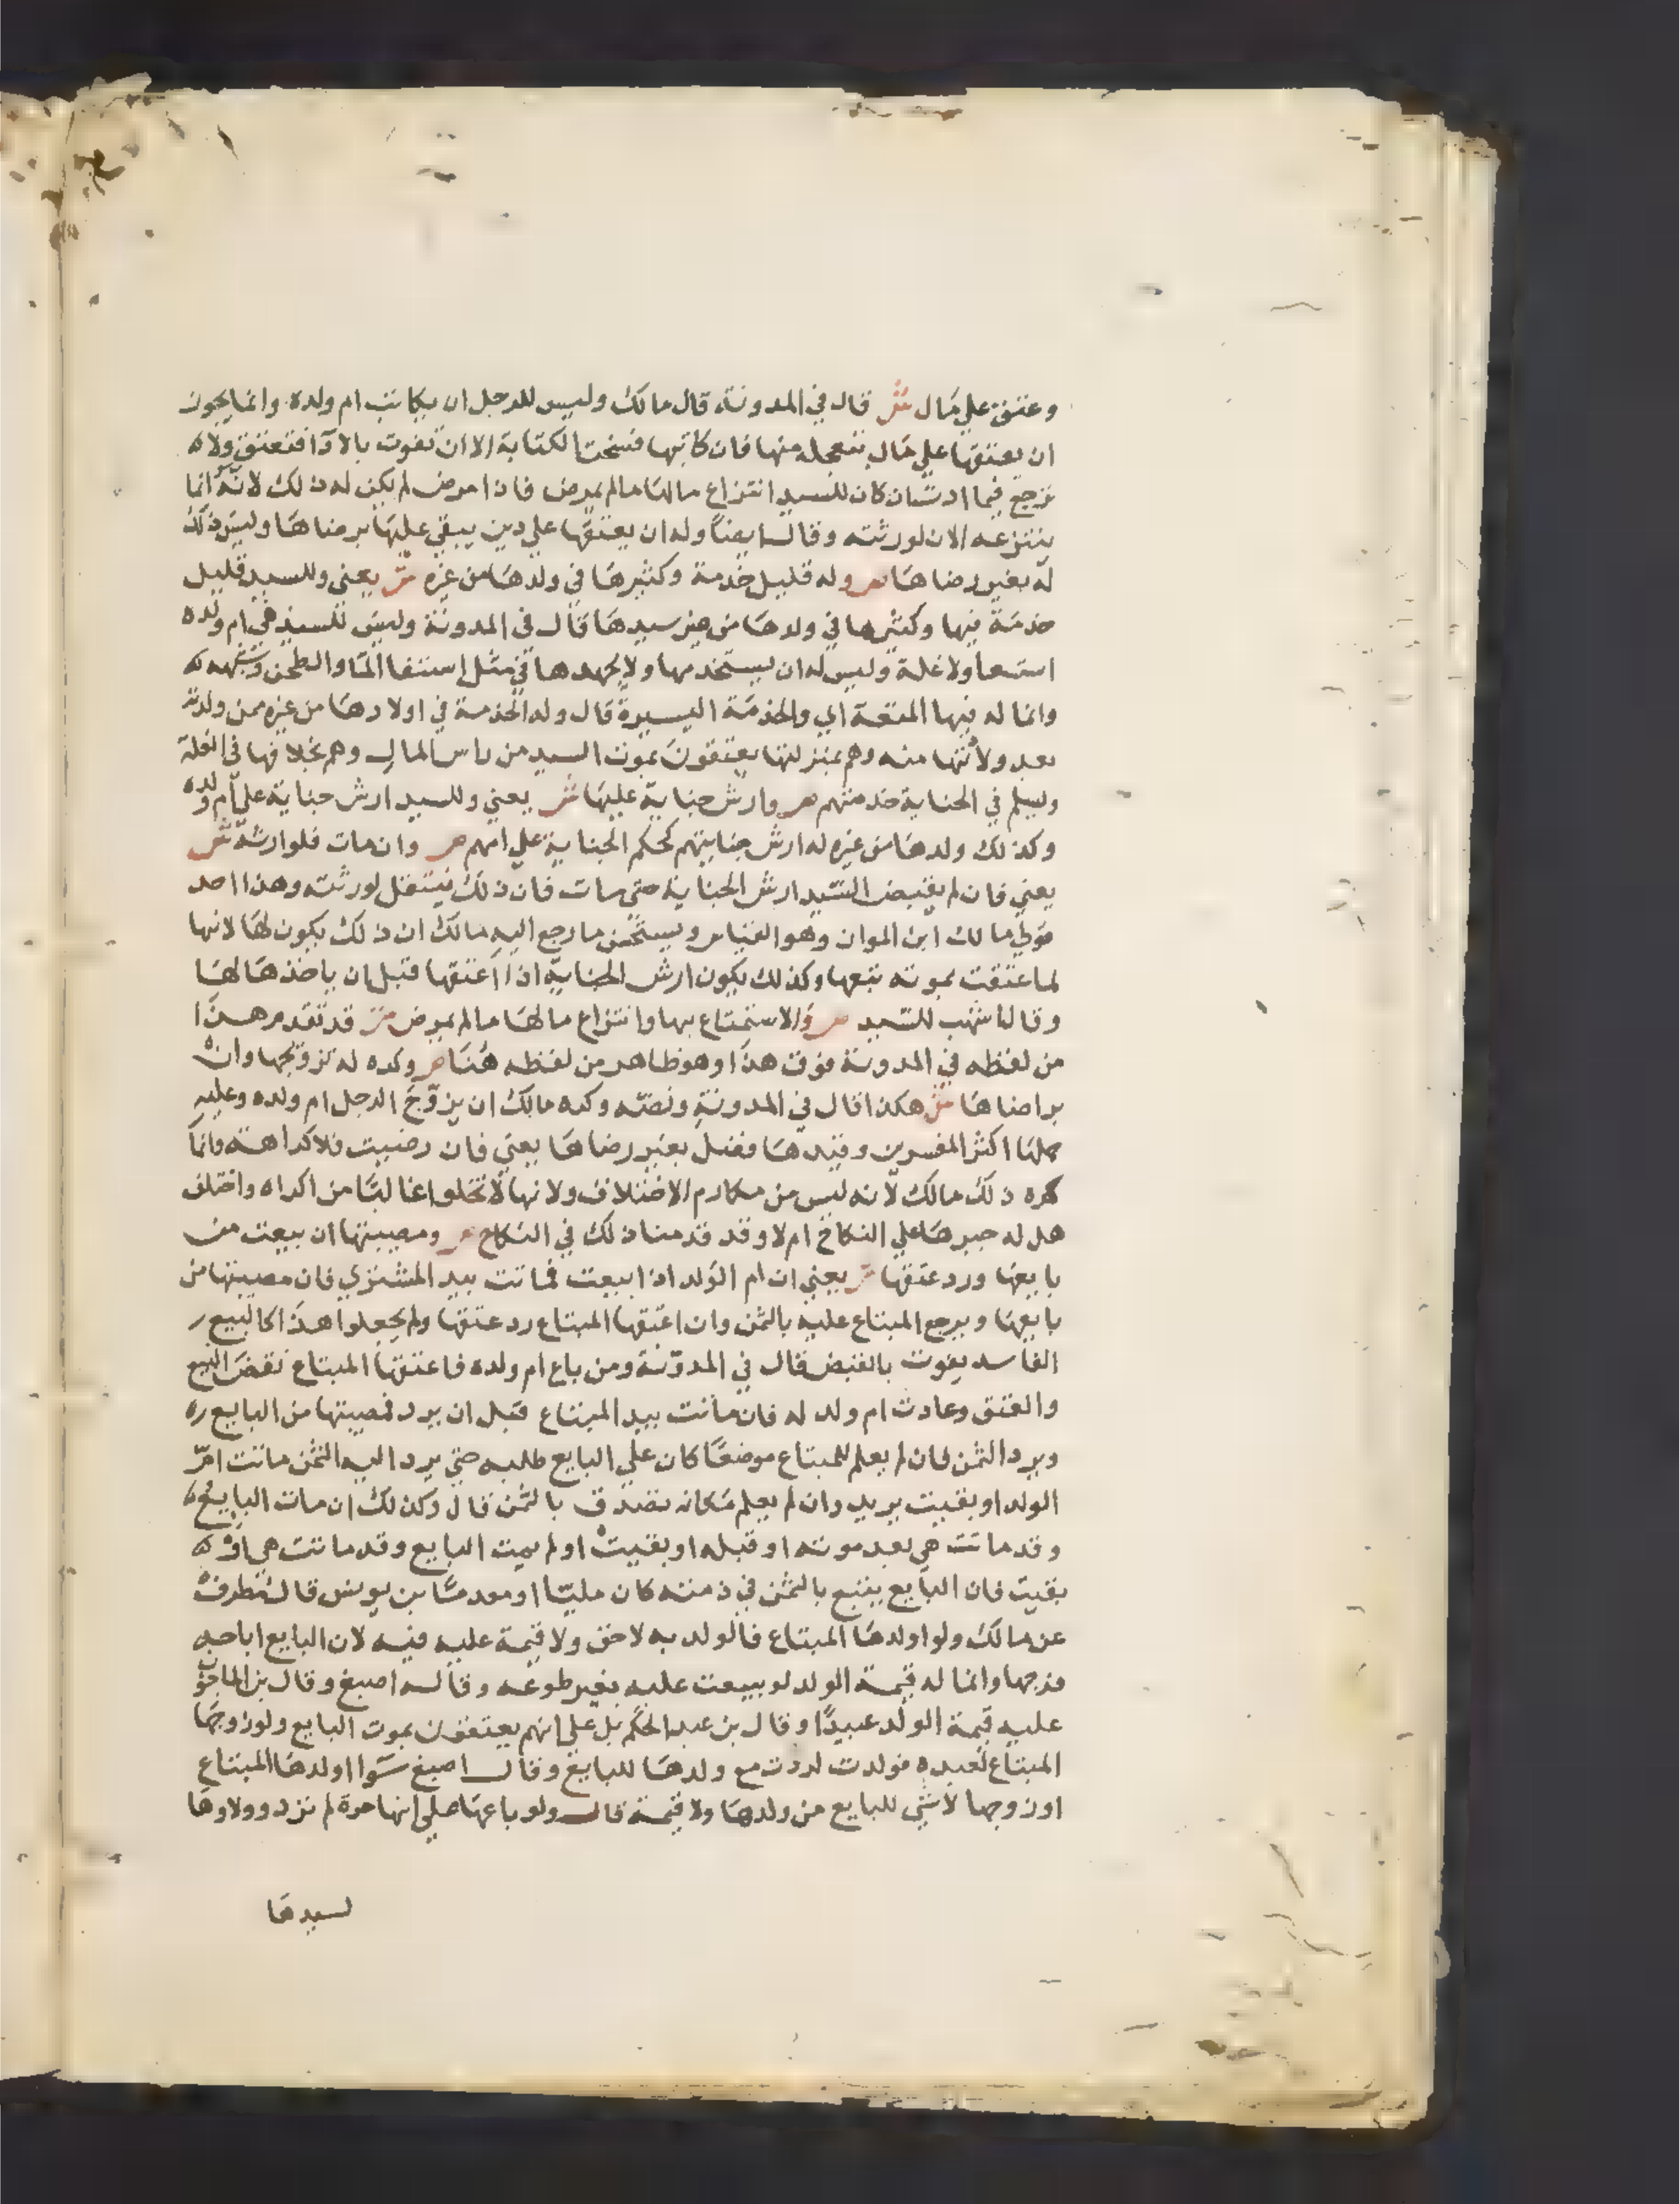 وعتق علي مال ش قال في المدونة قال مالك وليس للرجل ان يكاتب ام ولده وانما يجوز
ان يعتقها علي مال يتعجله منها فان كاتبها فسخت الكتابة الا ان تفوت بالادا فتعتق ولا
ترجع فيما ادت وان كان للسيد انتزاع مالها مالم يمرض فاذا مرض لم يكن له ذلك لانه انما
ينتزعه الان لورثته وقال ايضا وله ان يعتقها علي دين يبقي عليها برضاها وليس ذلك
له بغير رضاها ص وله قليل خدمة وكثيرها في ولدها من غيره ش يعني وللسيد قليل
خدمة فيها وكثيرها في ولدها من غير سيدها قال في المدونة وليس للسيد في ام ولده
استسعا ولا غلة وليس له ان يستخدمها ولا يجهدها في مثل استقا الما والطحن وشبهه
وانما له فيها المتعة اي والخدمة اليسيرة قال وله الخدمة في اولادها من غيره ممن ولدته
بعد ولادتها منه وهم بمنزلتها يعتقون بموت السيد من راس المال وهم بخلافها في الغلة
ويسلم في الجناية خدمتهم ص وارش جناية عليها ش يعني وللسيد ارش جناية علي ام ولده
وكذلك ولدها من غيره له ارش جنايتهم كحكم الجناية علي امهم ص وان مات فلوارثه ش
يعني فان لم يقبض السيد ارش الجناية حتي مات فان ذلك ينتقل لورثته وهذا احد
قولي مالك ابن المواز وهو القياس ويستحسن ما رجع اليه مالك ان ذلك يكون لها لانها
لما عتقت بموته تبعها وكذلك يكون ارش الجناية اذا اعتقها قبل ان ياخذها لها
وقال اشهب للسيد ص والاستمتاع بها وانتزاع مالها مالم يمرض ش قد تقدم هذا
من لفظه في المدونة فوق هذا وهو ظاهر من لفظه هنا ص وكره له تزويجها وان
برضاها ش هكذا قال في المدونة ونصه وكره مالك ان يزوج الرجل ام ولده وعليه
حملها اكثر المفسرين وقيدها فضل بغير رضاها يعني فان رضيت فلا كراهة وانما
كره ذلك مالك لانه ليس من مكارم الاختلاف ولانها لا تخلوا غالبا من اكراه واختلف
هل له جبرها علي النكاح ام لا وقد قدمنا ذلك في النكاح ص ومصيبتها ان بيعت من
بايعها ورد عتقها ش يعني ان ام الولد اذا بيعت فماتت بيد المشتري فان مصيبتها من
بايعها ويرجع المبتاع عليه بالثمن وان اعتقها المبتاع رد عتقها ولم يجعلوا هذا كالبيع
الفاسد يفوت بالقبض قال في المدونة ومن باع ام ولده فاعتقها المبتاع نقض البيع
والعتق وعادت ام ولد له فان ماتت بيد المبتاع قبل ان يرد فمصيبتها من البايع
ويرد الثمن فان لم يعلم للمبتاع موضعا كان علي البايع طلبه حتي يرد اليه الثمن ماتت ام
الولد او بقيت يريد وان لم يعلم مكانه تصدق بالثمن قال وكذلك ان مات البايع
وقد ماتت هي بعد موته او قبله او بقيت او لم يمت البايع وقد ماتت هي او
بقيت فان البايع يتبع بالثمن في ذمته كان مليا او معدما بن يونس قال مطرف
عن مالك ولو اولدها المبتاع فالولد به لاحق ولا قيمة عليه فيه لان البايع اباحه
فرجها وانما له قيمة الولد لو بيعت عليه بغير طوعه وقاله اصبغ وقال بن الماجشون
عليه قيمة الولد عبيدا وقال بن عبد الحكم بل علي انهم يعتقون بموت البايع ولو زوجها
المبتاع لعبده فولدت لردت مع ولدها للبايع وقال اصبغ سوا اولدها المبتاع
او زوجها لا شي للبايع من ولدها ولا قيمة قال ولو باعها علي انها حرة لم ترد وولاوها
لسيدها